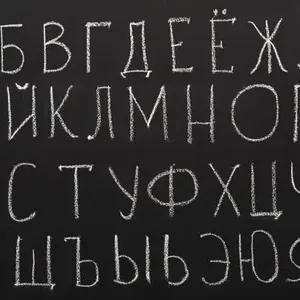 БВГДЕЁЖ
ЙКЛМНО
СТУФХЦ
ЩЪЫЬЭЮ